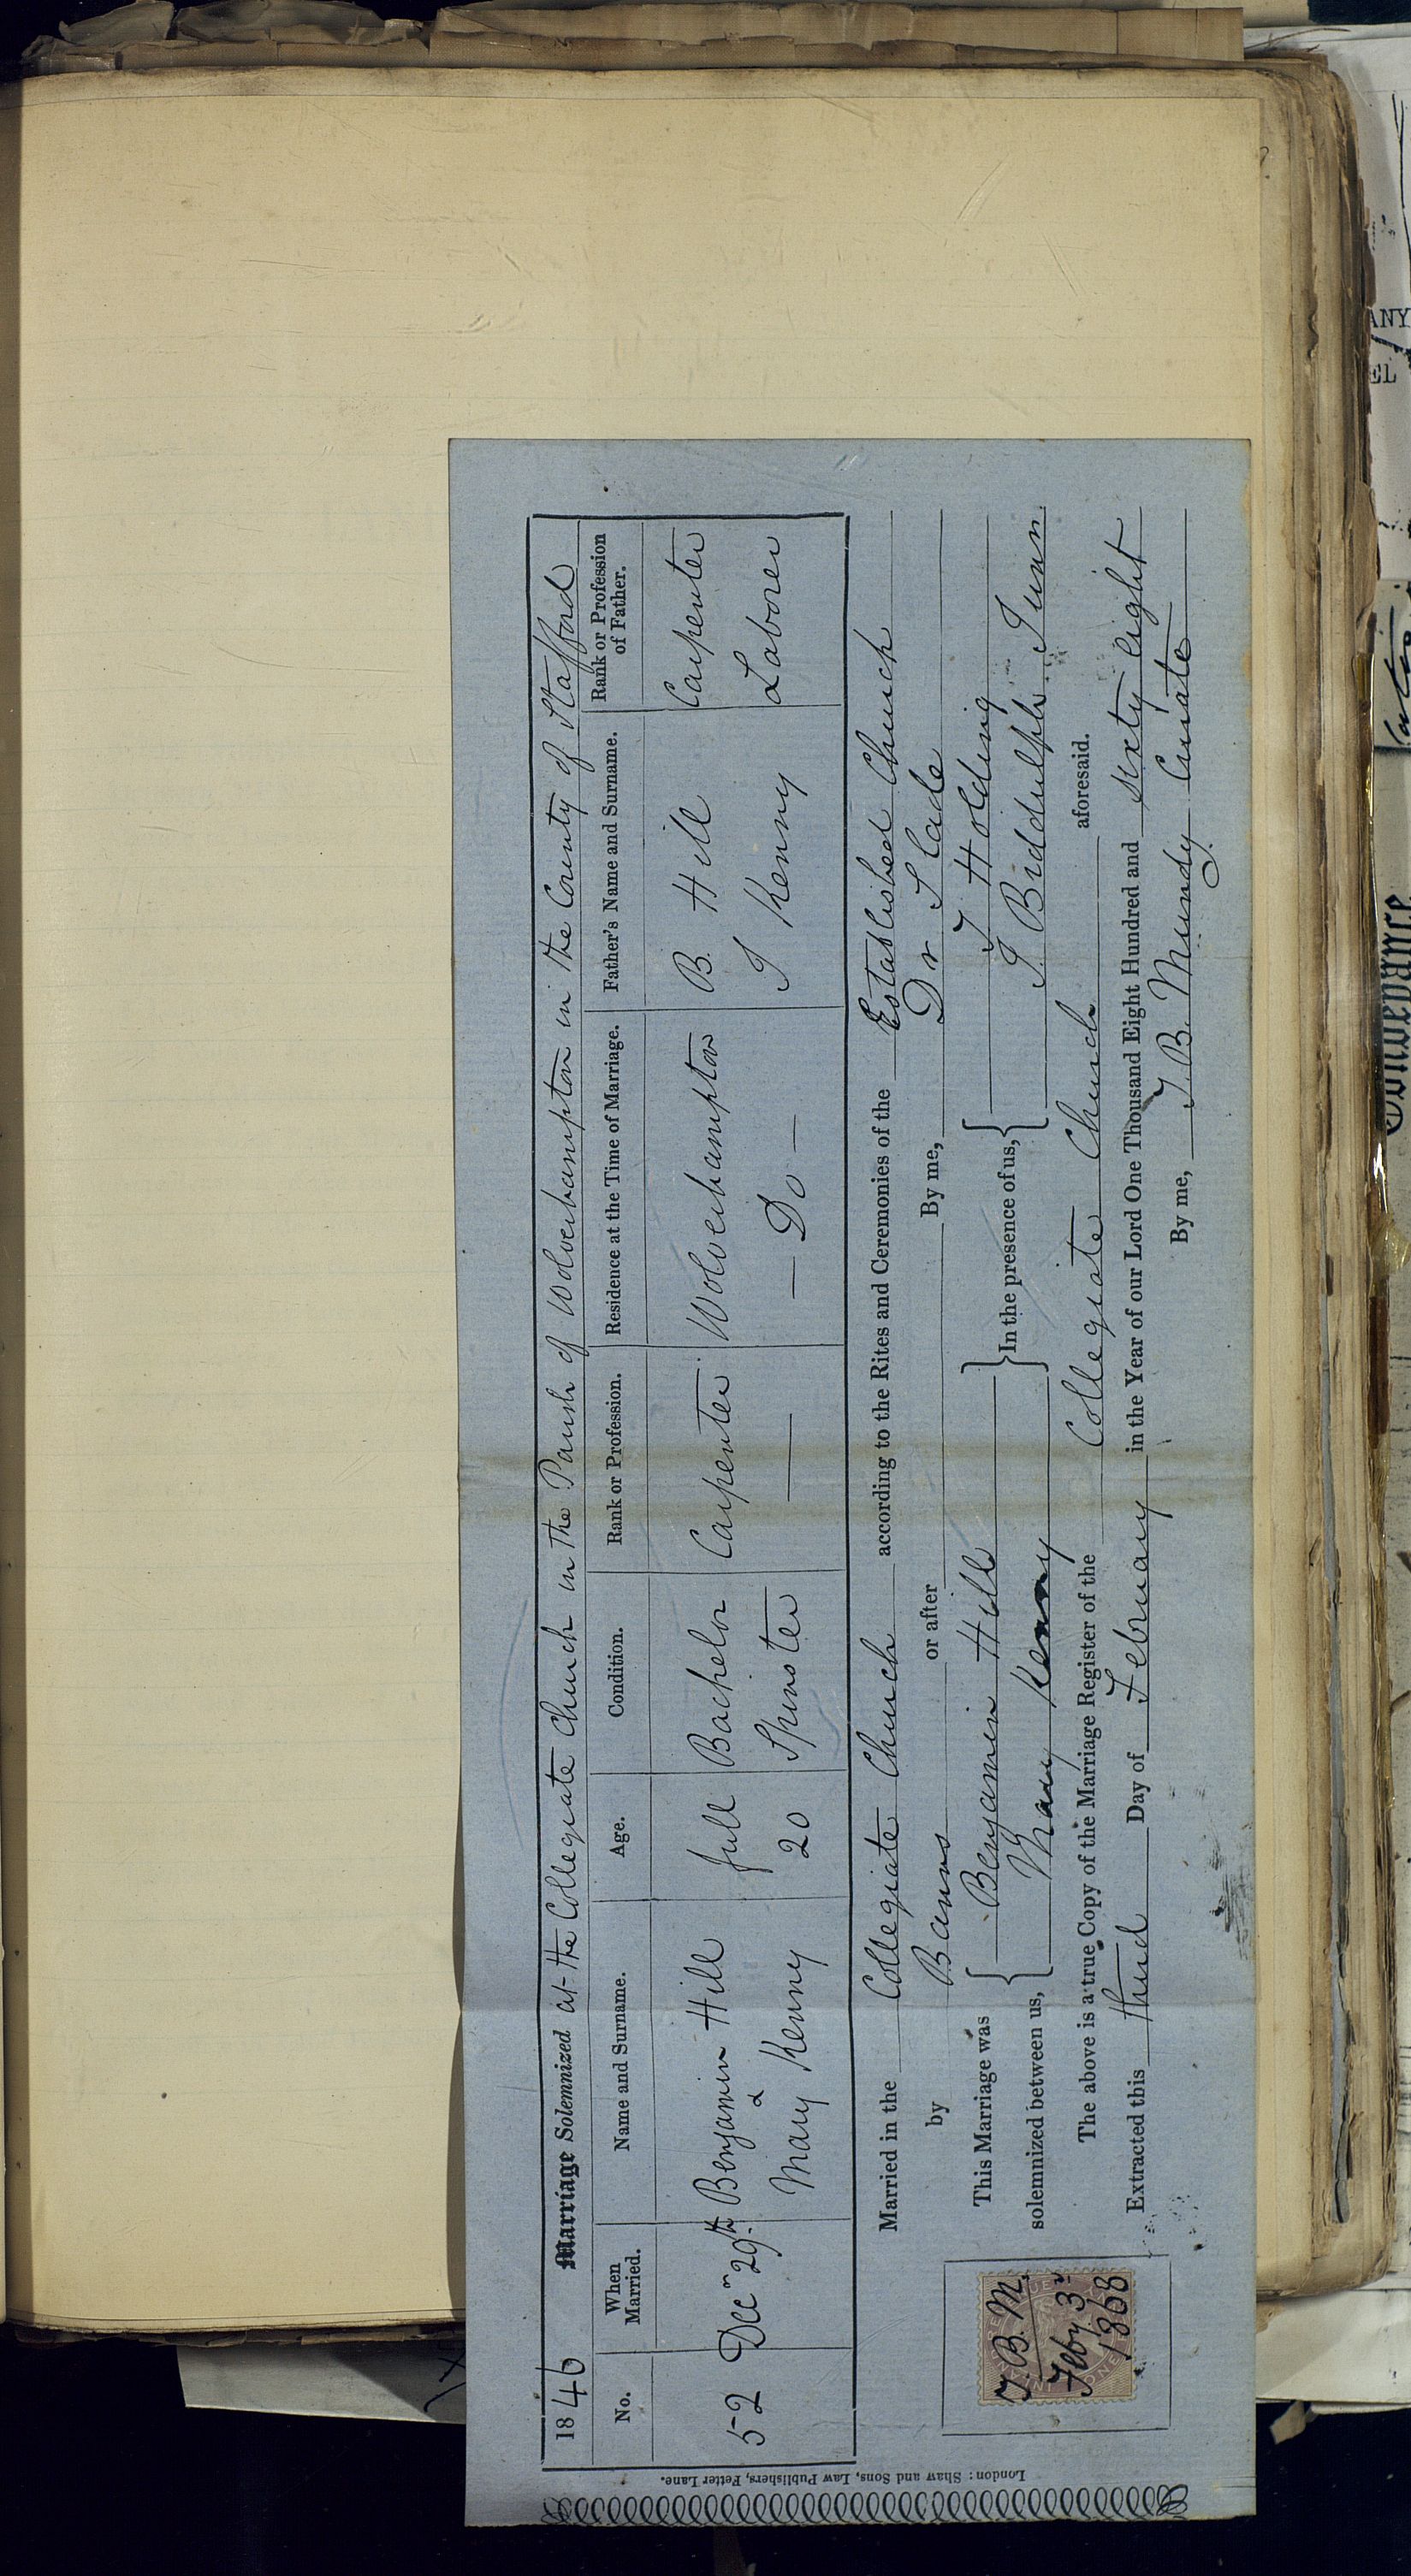 1846 Marriage Solemnized at the Collegiate Church in the Parish of Wolverhampton in the County of Stafford
No. When Married. Name and Surname. Age. Condition. Rank or Profession. Residence at the Time of Marriage. Father's Name and Surname. Rank or Profession of Father.
52 Decr 29th Benjamin Hill full Bachelor Carpenter Wolverhampton B. Hill Carpenter
&
Mary Kenny 20 Spinster — — Do — J Kenny Laborer
Married in the Collegiate Church according to the Rites and Ceremonies of the Established Church
by Banns or after By me, Dr Slade
This Marriage was solemnized between us, { Benjamin Hill } In the presence of us, { J Holding
Mary Kenny J. Biddulph Junr
The above is a true Copy of the Marriage Register of the Collegiate Church aforesaid.
Extracted this third Day of February in the Year of our Lord One Thousand Eight Hundred and sixty eight
By me, J. B. Mundy Curate
J. B. M.
Feby 3rd
1868
ONE
London: Shaw and Sons, Law Publishers, Fetter Lane.
ANY
EL
Conveyance